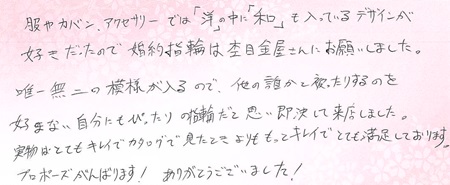 服やカバン、アクセサリーでは「洋」の中に「和」も入っているデザインが
好きだったので婚約指輪は杢目金屋さんにお願いしました。
唯一無二の模様が入るので、他の誰かと被ったりするのを
好まない自分にもぴったりの指輪だと思い即決して来店しました。
実物はとてもキレイでカタログで見たときよりももっとキレイでとても満足しております。
プロポーズがんばります！ありがとうございました！